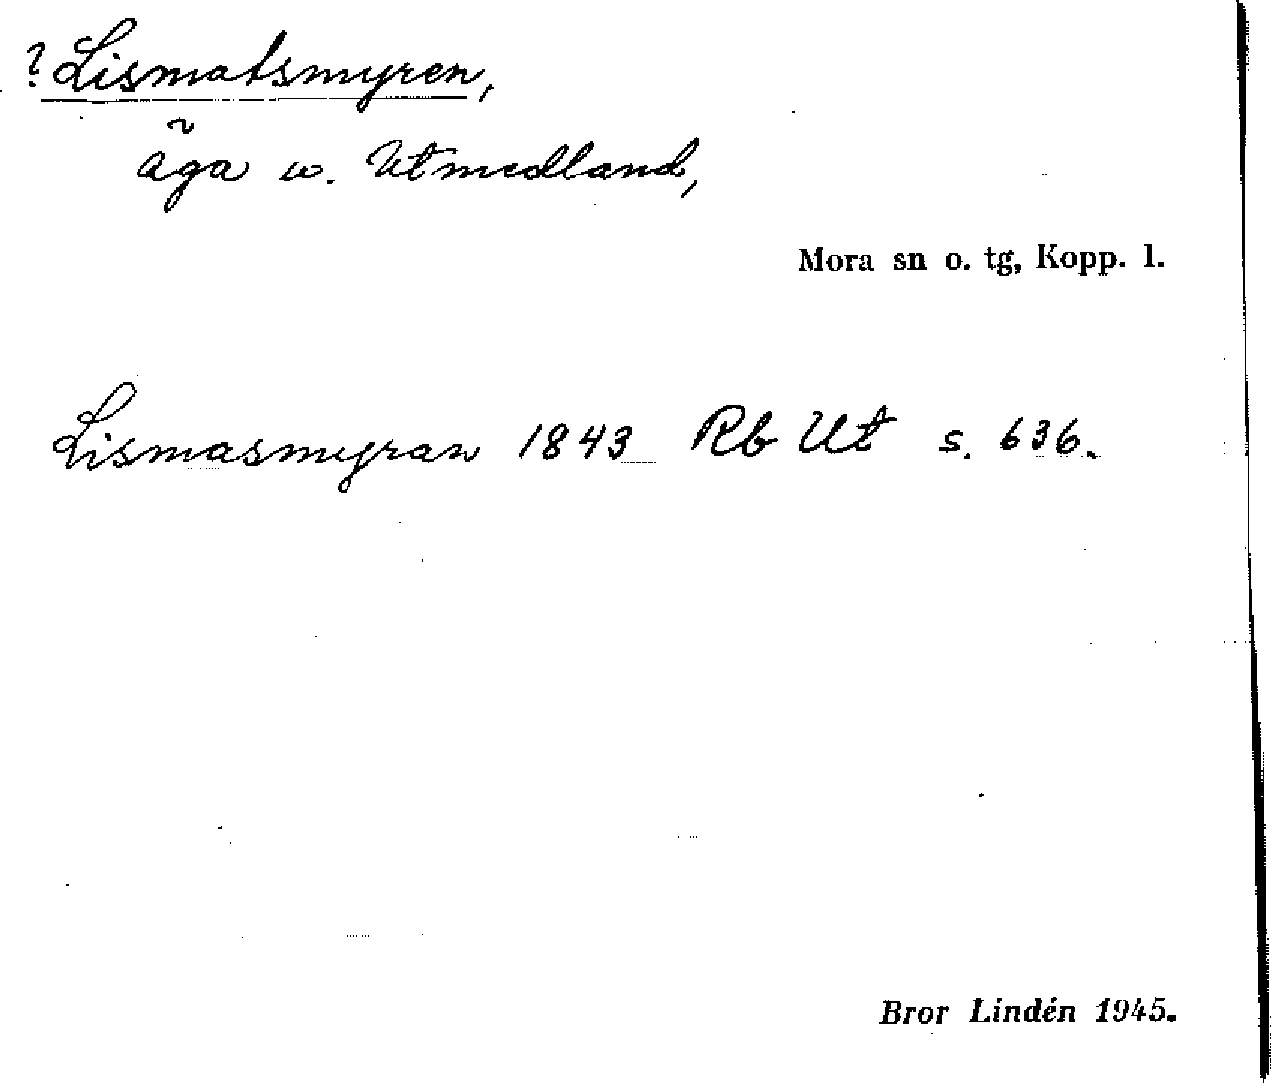 ? Lismatsmyren,
äga w. Utmedland,
Mora sn o. tg, Kopp. l.
Lismasmyran 1843 Rb Ut s. 636.
Bror Lindén 1945.